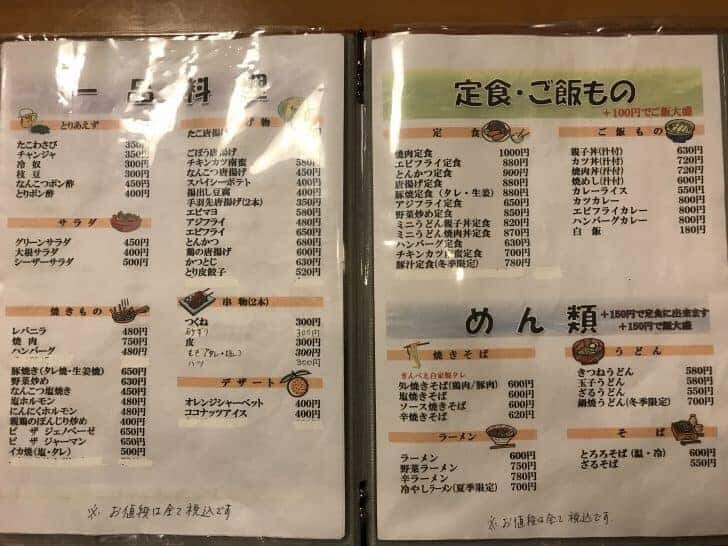 一品料理
とりあえず
たこわさび 350円
チャンジャ 350円
冷奴 300円
枝豆 300円
なんこつポン酢 450円
とりポン酢 450円
サラダ
グリーンサラダ 450円
大根サラダ 400円
シーザーサラダ 500円
焼きもの
レバニラ 480円
焼肉 750円
ハンバーグ 480円
豚焼き(タレ焼・生姜焼) 650円
野菜炒め 630円
なんこつ塩焼き 450円
塩ホルモン 480円
にんにくホルモン 480円
親鶏のぼんじり炒め 400円
ピザ ジェノベーゼ 650円
ピザ ジャーマン 650円
イカ焼(塩・タレ) 500円
げ物
たこ唐揚げ
ごぼう唐揚げ
チキンカツ南蛮 580円
なんこつ唐揚げ 450円
スパイシーポテト 400円
揚出し豆腐 400円
手羽先唐揚げ(2本) 350円
エビマヨ 580円
アジフライ 480円
エビフライ 650円
とんかつ 680円
鶏の唐揚げ 600円
かつとじ 630円
とり皮餃子 520円
串物(2本)
つくね 300円
300円
皮 300円
もも(タレ・塩) 300円
ハツ 300円
デザート
オレンジシャーベット 400円
ココナッツアイス 400円
※お値段は全て税込です
定食・ご飯もの
+100円でご飯大盛
定食
焼肉定食 1000円
エビフライ定食 880円
とんかつ定食 900円
唐揚げ定食 880円
豚焼定食(タレ・生姜) 880円
アジフライ定食 650円
野菜炒め定食 850円
ミニうどん親子丼定食 820円
ミニうどん焼肉丼定食 870円
ハンバーグ定食 630円
チキンカツ南蛮定食 700円
豚汁定食(冬季限定) 780円
ご飯もの
親子丼(汁付) 630円
カツ丼(汁付) 720円
焼肉丼(汁付) 720円
焼めし(汁付) 600円
カレーライス 550円
カツカレー 800円
エビフライカレー 800円
ハンバーグカレー 800円
白飯 180円
めん類
+150円で定食に出来ます
+150円で麺大盛
焼きそば
きんべえ自家製タレ
タレ焼きそば(鶏肉/豚肉) 600円
塩焼きそば 600円
ソース焼きそば 600円
辛焼きそば 620円
うどん
きつねうどん 580円
玉子うどん 580円
ざるうどん 550円
鍋焼うどん(冬季限定) 700円
ラーメン
ラーメン 600円
野菜ラーメン 750円
辛ラーメン 780円
冷やしラーメン(夏季限定) 700円
そば
とろろそば(温・冷) 600円
ざるそば 550円
※お値段は全て税込です.